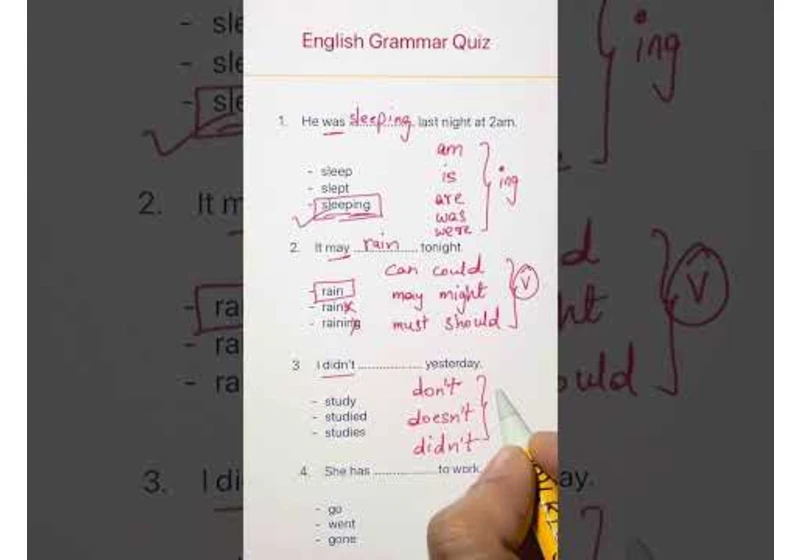 English Grammar Quiz
1. He was sleeping last night at 2am.
- sleep
- slept
- sleeping
am
is
are
was
were
ing
2. It may rain tonight.
- rain
- rains
- raining
can could
may might
must should
V
3 I didn't .................. yesterday.
- study
- studied
- studies
don't
doesn't
didn't
4. She has .................. to work.
- go
- went
- gone
sle
sle
sle
2. It m
ra
ra
ra
3. I di
ing
d
ht
ould
V
ay.